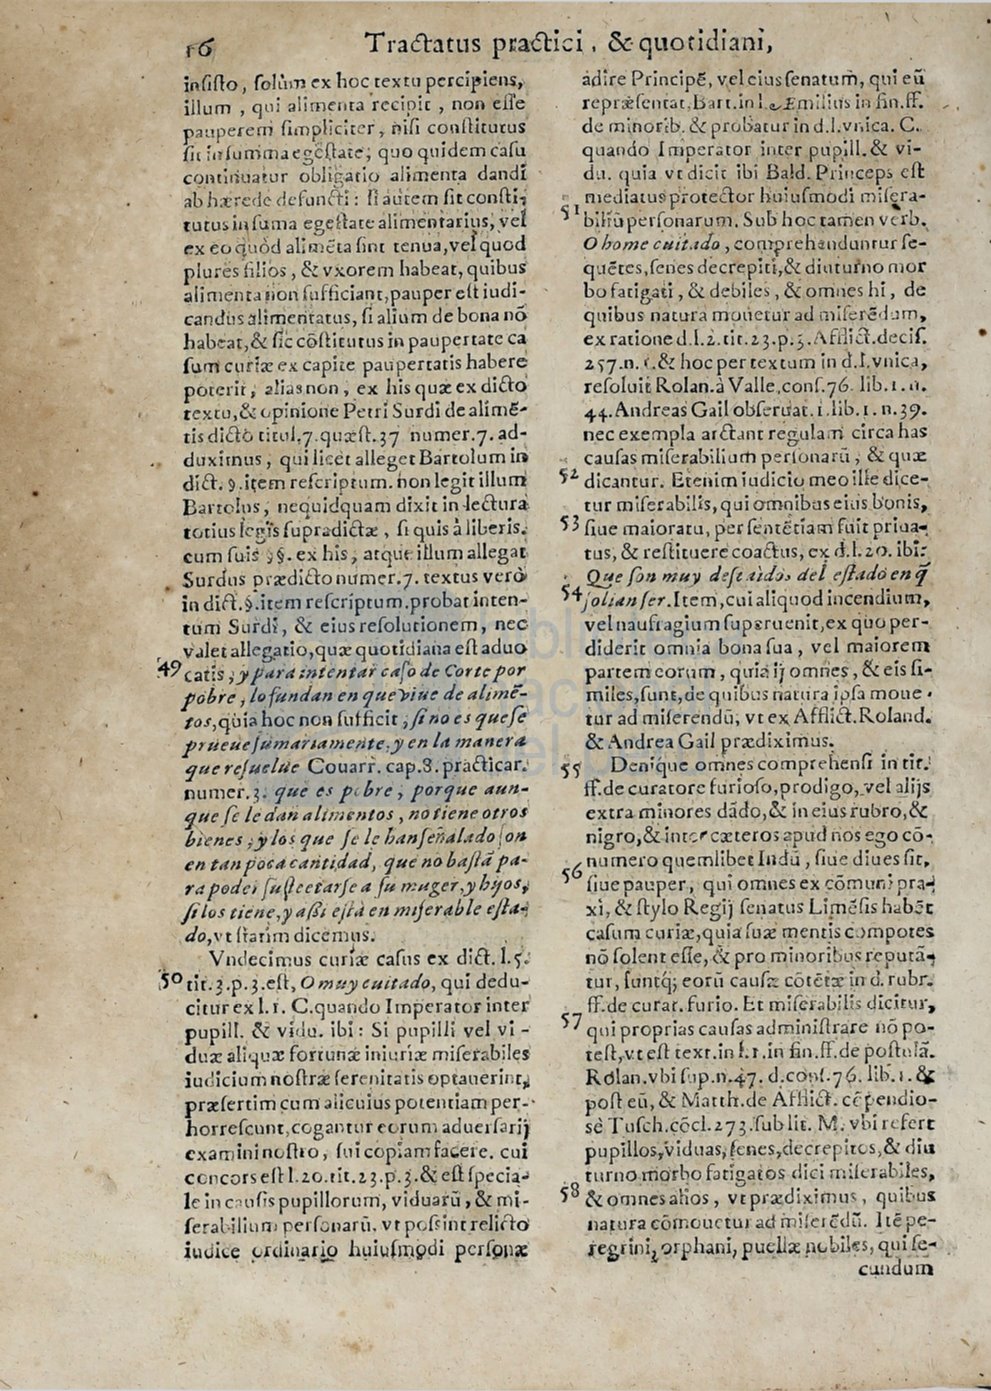 16 Tractatus practici, & quotidiani,
insisto, solùm ex hoc textu percipiens,
illum, qui alimenta recipit, non esse
pauperem simpliciter, nisi constitutus
sit in summa egestate; quo quidem casu
continuatur obligatio alimenta dandi
ab hærede defuncti: si autem sit consti-
tutus in suma egestate alimentarius, vel
ex eo quòd alimēta sint tenua, vel quod
plures filios, & vxorem habeat, quibus
alimenta non sufficiant, pauper est iudi-
candus alimentatus, si alium de bona nō
habeat, & sic cōstitutus in paupertate ca
sum curiæ ex capite paupertatis habere
poterit, alias non, ex his quæ ex dicto
textu, & opinione Petri Surdi de alimē-
tis dicto titul. 7. quæst. 37 numer. 7. ad-
duximus, qui licet alleget Bartolum in
dict. §. item rescriptum. non legit illum
Bartolus, nequidquam dixit in lectura
totius legis supradictæ, si quis à liberis.
cum suis §§. ex his, atque illum allegat
Surdus prædicto numer. 7. textus verò
in dict. §. item rescriptum. probat inten-
tum Surdi, & eius resolutionem, nec
valet allegatio, quæ quotidiana est aduo
49 catis; y para intentar caso de Corte por
pobre, lo fundan en que viue de alimē-
tos, quia hoc non sufficit; si no es que se
prueue sumariamente, y en la manera
que resuelue Couarr. cap. 8. practicar.
numer. 3. que es pobre, porque aun-
que se le dan alimentos, no tiene otros
bienes; y los que se le han señalado son
en tan poca cantidad, que no bastā pa-
ra poder sustentarse a su muger, y hijos,
si los tiene, y assi està en miserable esta-
do, vt statim dicemus.
Vndecimus curiæ casus ex dict. l. 5.
50 tit. 3. p. 3. est, O muy cuitado, qui dedu-
citur ex l. 1. C. quando Imperator inter
pupill. & vidu. ibi: Si pupilli vel vi-
duæ aliquæ fortunæ iniuriæ miserabiles
iudicium nostræ serenitatis optauerint,
præsertim cum alicuius potentiam per-
horrescunt, cogantur eorum aduersarij
examini nostro, sui copiam facere. cui
concors est l. 20. tit. 23. p. 3. & est specia-
le in causis pupillorum, viduarū, & mi-
serabilium personarū, vt possint relicto
iudice ordinario huiusmodi personæ
adire Principē, vel eius senatum, qui eū
repræsentat, Bart. in l. Æmilius in fin. ff.
de minorib. & probatur in d. l. vnica. C.
quando Imperator inter pupill. & vi-
du. quia vt dicit ibi Bald. Princeps est
mediatus protector huiusmodi misera-
51 biliū personarum. Sub hoc tamen verb.
O home cuitado, comprehenduntur se-
quētes, senes decrepiti, & diuturno mor
bo fatigati, & debiles, & omnes hi, de
quibus natura mouetur ad miserēdum,
ex ratione d. l. 2. tit. 23. p. 3. Afflict. decis.
257. n. & hoc per textum in d. l. vnica,
resoluit Rolan. à Valle, cons. 76. lib. 1. n.
44. Andreas Gail obseruat. 1. lib. 1. n. 39.
nec exempla arctant regulam circa has
causas miserabilium personarū, & quæ
52 dicantur. Etenim iudicio meo ille dice-
tur miserabilis, qui omnibus eius bonis,
53 siue maioratu, per sentētiam fuit priua-
tus, & restituere coactus, ex d. l. 20. ibi:
Que son muy deseaidos del estado en q̄
54 solian ser. Item, cui aliquod incendium,
vel naufragium superuenit, ex quo per-
diderit omnia bona sua, vel maiorem
partem eorum, quia ij omnes, & eis si-
miles, sunt, de quibus natura ipsa moue-
tur ad miserendū, vt ex Afflict. Roland.
& Andrea Gail prædiximus.
55 Denique omnes comprehensi in tit.
ff. de curatore furioso, prodigo, vel alijs
extra minores dādo, & in eius rubro, &
nigro, & inter cæteros apud nos ego cō-
numero quemlibet Indū, siue diues sit,
56 siue pauper, qui omnes ex cōmuni pra-
xi, & stylo Regij senatus Limēsis habēt
casum curiæ, quia suæ mentis compotes
nō solent esse, & pro minoribus reputā-
tur, suntq; eorū causæ cōtētæ in d. rubr.
ff. de curat. furio. Et miserabilis dicitur,
57 qui proprias causas administrare nō po-
test, vt est text. in l. 1. in fin. ff. de postulā.
Rolan. vbi sup. n. 47. d. cons. 76. lib. 1. &
post eū, & Matth. de Afflict. cōpendio-
sè Tusch. cōcl. 273. sub lit. M. vbi refert
pupillos, viduas, senes, decrepitos, & diu
turno morbo fatigatos dici miserabiles,
58 & omnes alios, vt prædiximus, quibus
natura cōmouetur ad miserēdū. Itē pe-
regrini, orphani, puellæ nobiles, qui se-
cundum